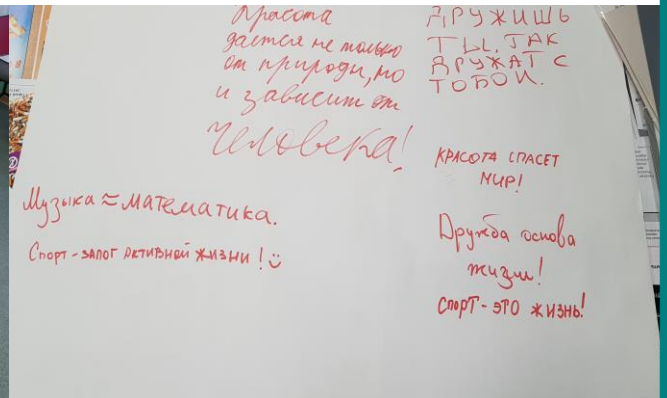 Красота
дается не только
от природы, но
и зависит от
человека!
ДРУЖИШЬ
ТЫ, ТАК
ДРУЖАТ С
ТОБОЙ.
КРАСОТА СПАСЕТ
МИР!
Музыка ≈ математика.
Спорт - залог активной жизни! :)
Дружба основа
жизни!
Спорт - это жизнь!